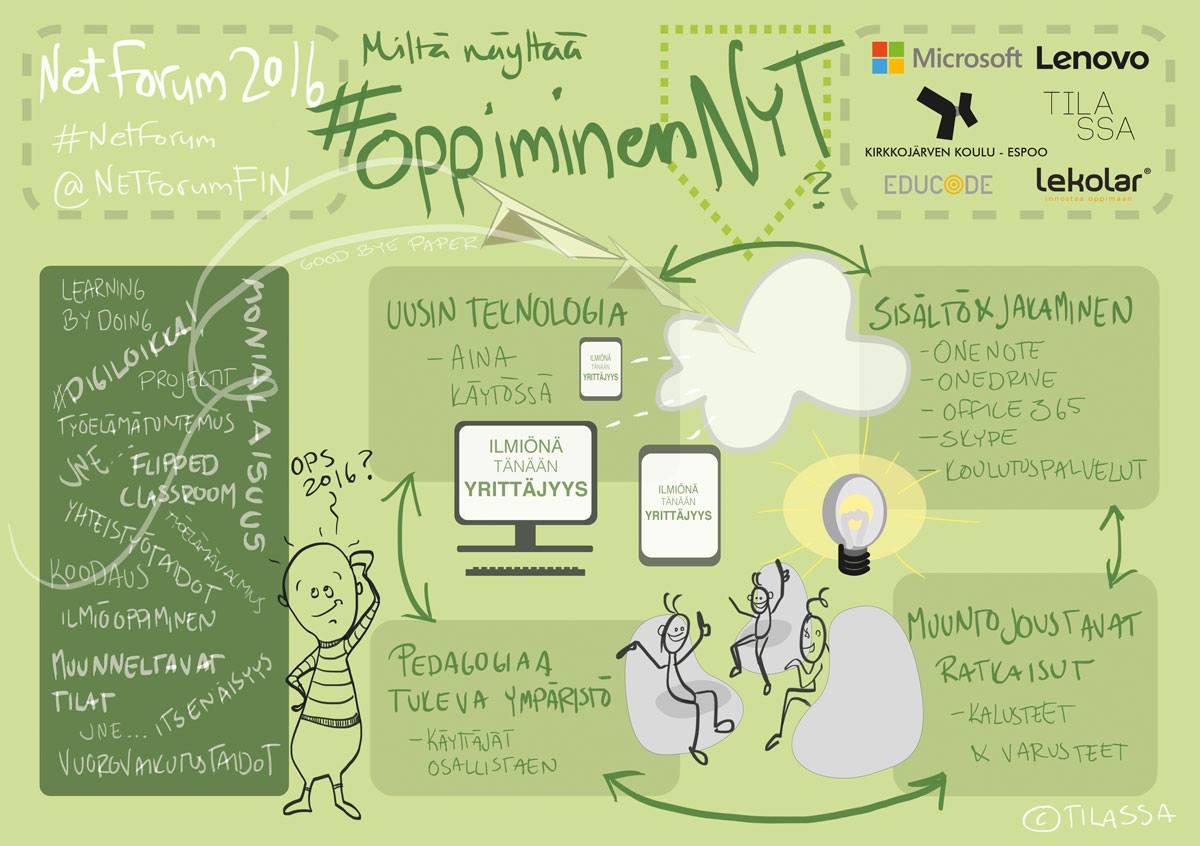 NetForum 2016
#NetForum
@NETForumFIN
Miltä näyttää
#oppiminen NYT
?
Microsoft
Lenovo
TILA
SSA
KIRKKOJÄRVEN KOULU - ESPOO
EDUCODE
lekolar®
innostaa oppimaan
GOOD BYE PAPER
MONIALAISUUS
LEARNING
BY DOING
#DIGILOIKKA!
PROJEKTIT
TYÖELÄMÄTUNTEMUS
JNE...
FLIPPED
CLASSROOM
YHTEISTYÖTAIDOT
TYÖELÄMÄVALMIUS
KOODAUS
ILMIÖOPPIMINEN
MUUNNELTAVAT
TILAT
JNE...
ITSENÄISYYS
VUOROVAIKUTUSTAIDOT
OPS
2016?
UUSIN TEKNOLOGIA
- AINA
KÄYTÖSSÄ
ILMIÖNÄ
TÄNÄÄN
YRITTÄJYYS
ILMIÖNÄ
TÄNÄÄN
YRITTÄJYYS
ILMIÖNÄ
TÄNÄÄN
YRITTÄJYYS
SISÄLTÖ & JAKAMINEN
- ONENOTE
- ONEDRIVE
- OFFICE 365
- SKYPE
- KOULUTUSPALVELUT
PEDAGOGIAA
TUKEVA YMPÄRISTÖ
- KÄYTTÄJÄT
OSALLISTAEN
MUUNTOJOUSTAVAT
RATKAISUT
- KALUSTEET
& VARUSTEET
© TILASSA